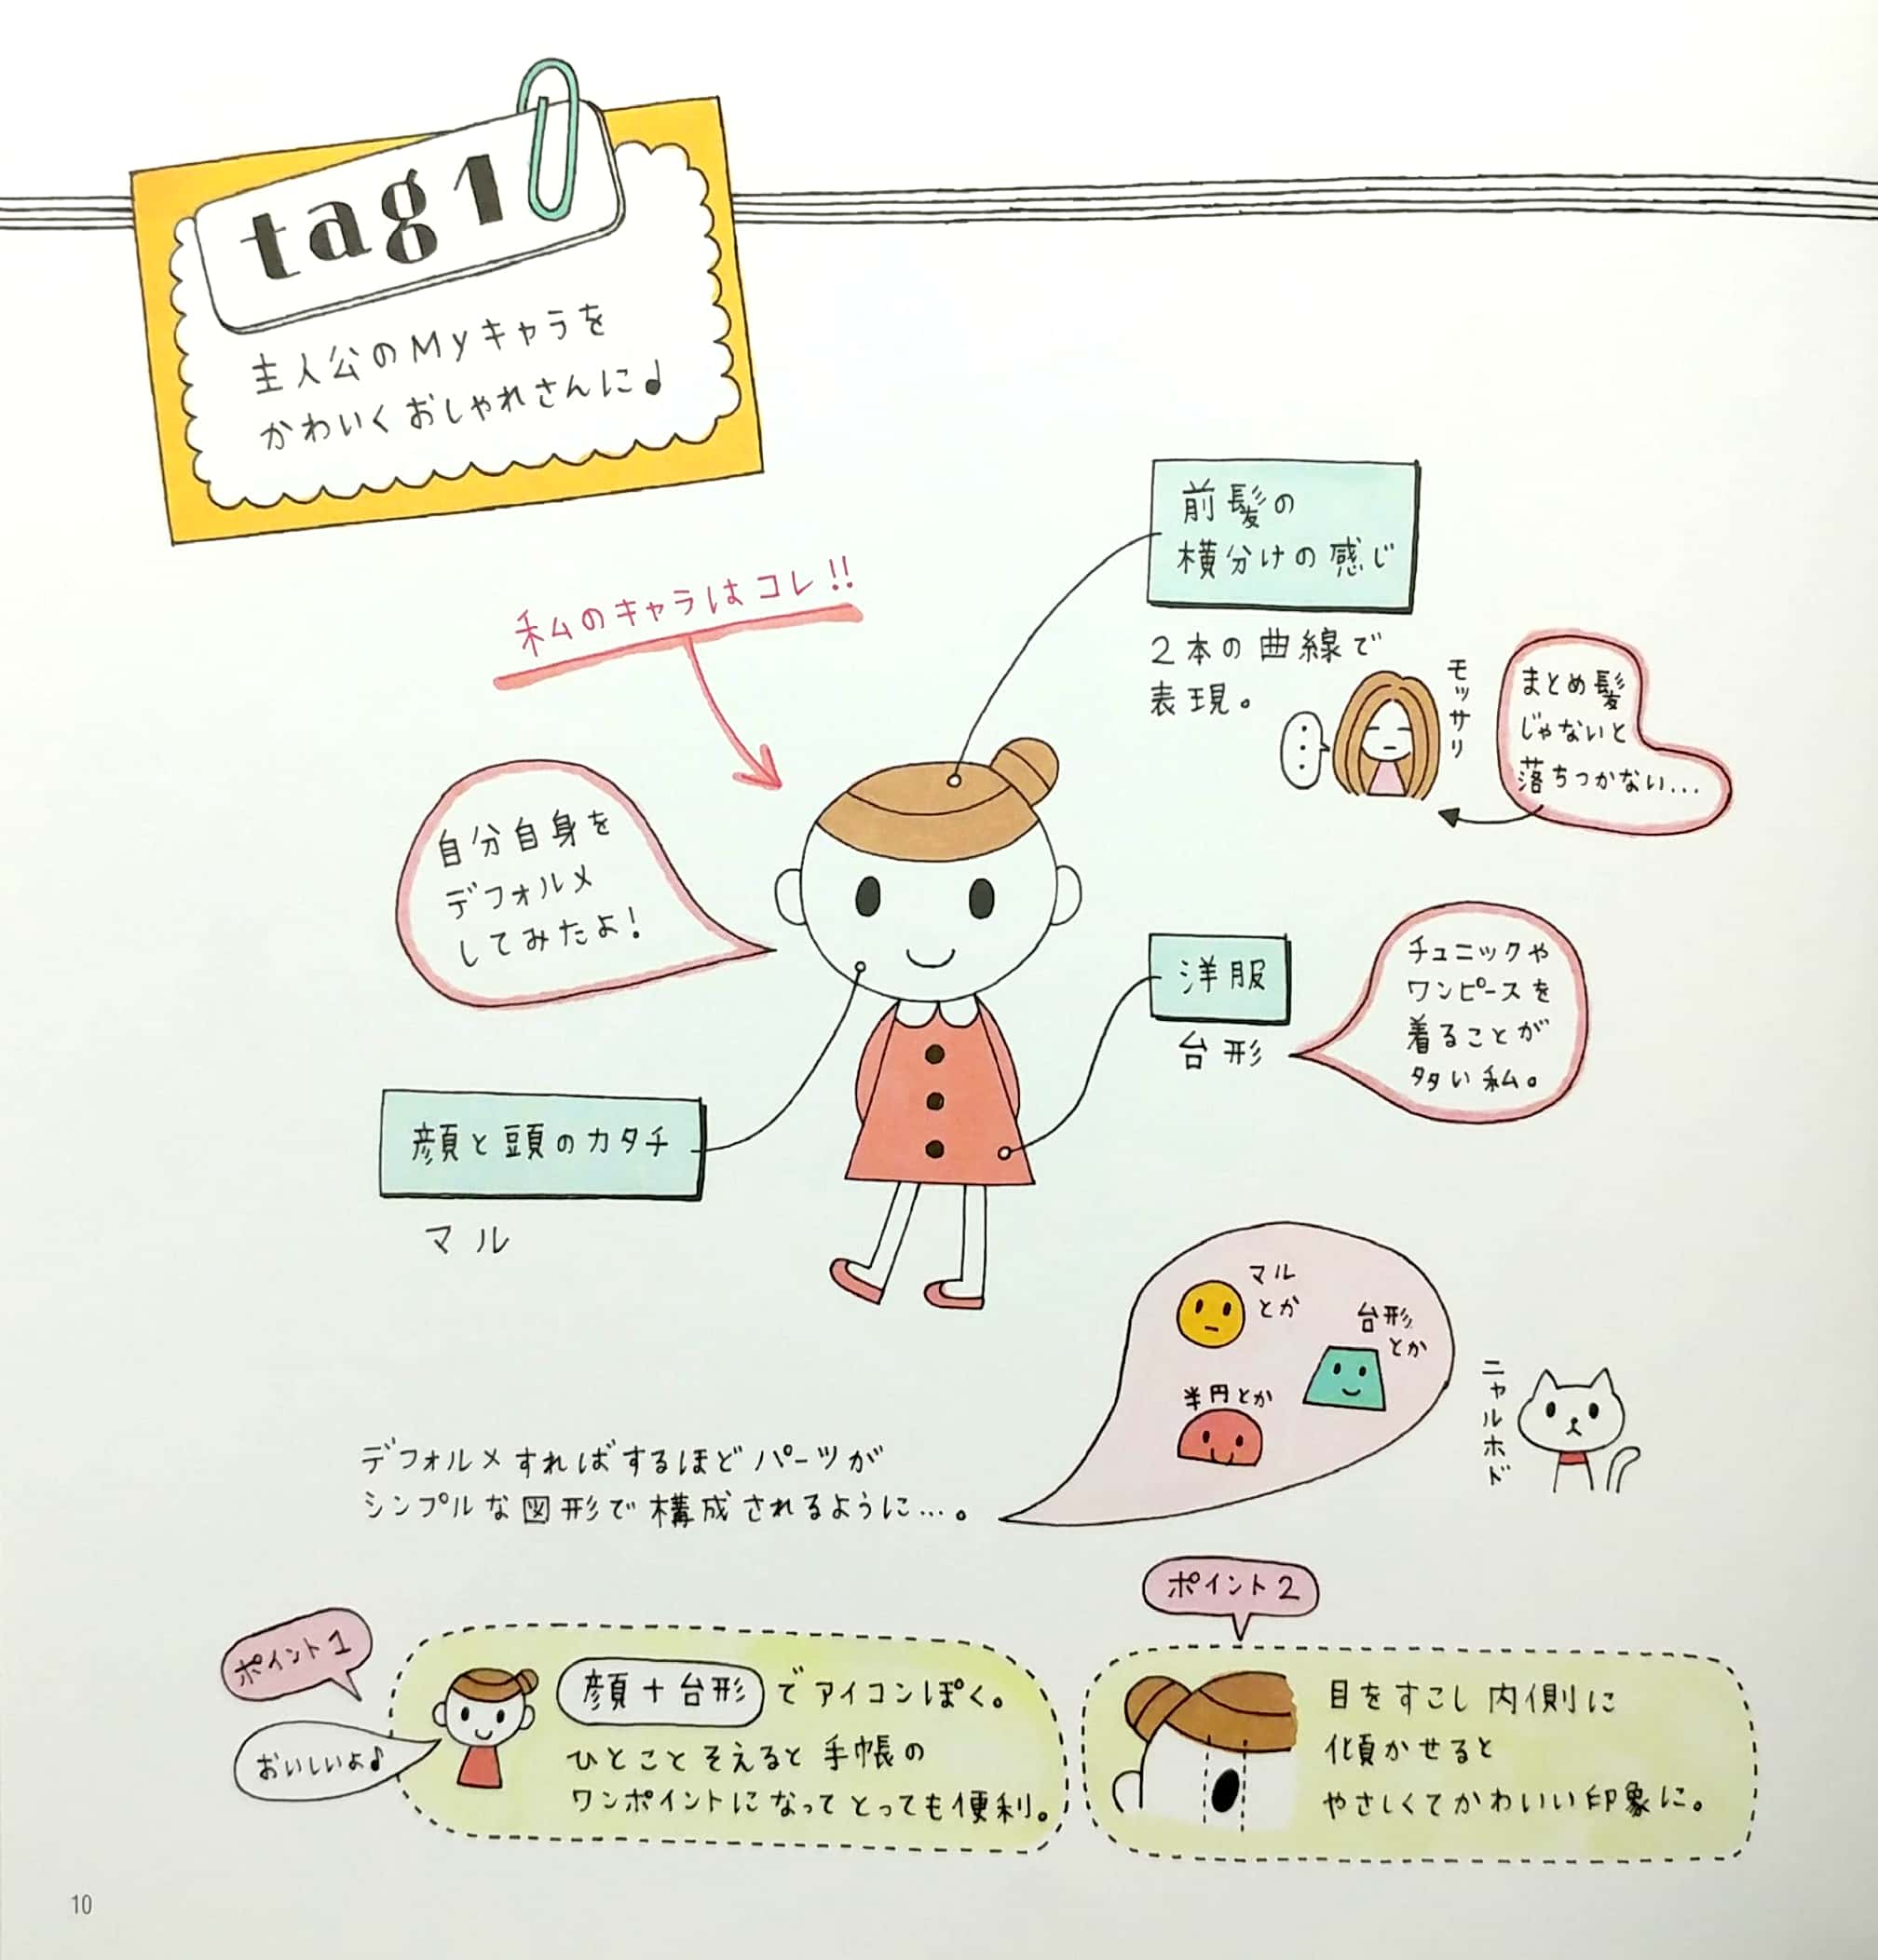 tag1
主人公のMyキャラを
かわいくおしゃれさんに♩
私のキャラはコレ!!
前髪の
横分けの感じ
2本の曲線で
表現。
モッサリ
まとめ髪
じゃないと
落ちつかない…
自分自身を
デフォルメ
してみたよ!
洋服
台形
チュニックや
ワンピースを
着ることが
多い私。
顔と頭のカタチ
マル
マル
とか
台形
とか
半円とか
ニャルホド
デフォルメすればするほどパーツが
シンプルな図形で構成されるように…。
ポイント1
おいしいよ♪
顔+台形でアイコンぽく。
ひとことそえると手帳の
ワンポイントになってとっても便利。
ポイント2
目をすこし内側に
傾かせると
やさしくてかわいい印象に。
10